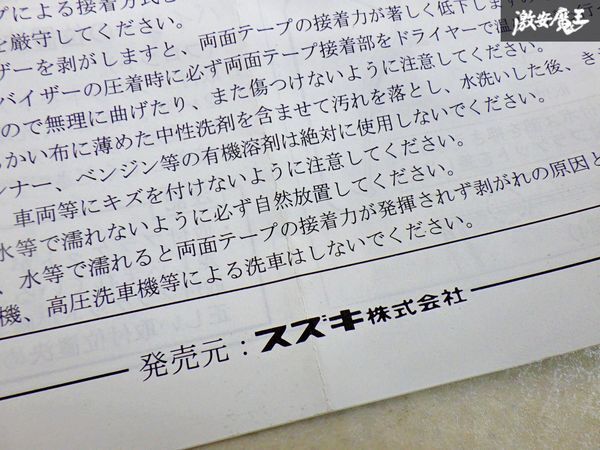 激安魔王
グによる接着方式
を厳守してください。
ザーを剥がしますと、両面テープの接着力が著しく低下します
バイザーの圧着時に必ず両面テープ接着部をドライヤーで温
ので無理に曲げたり、また傷つけないように注意してください。
らかい布に薄めた中性洗剤を含ませて汚れを落とし、水洗いした後、き
ンナー、ベンジン等の有機溶剤は絶対に使用しないでください。
車両等にキズを付けないように注意してください。
水等で濡れないように必ず自然放置してください。
、水等で濡れると両面テープの接着力が発揮されず剥がれの原因と
機、高圧洗車機等による洗車はしないでください。
発売元：スズキ株式会社